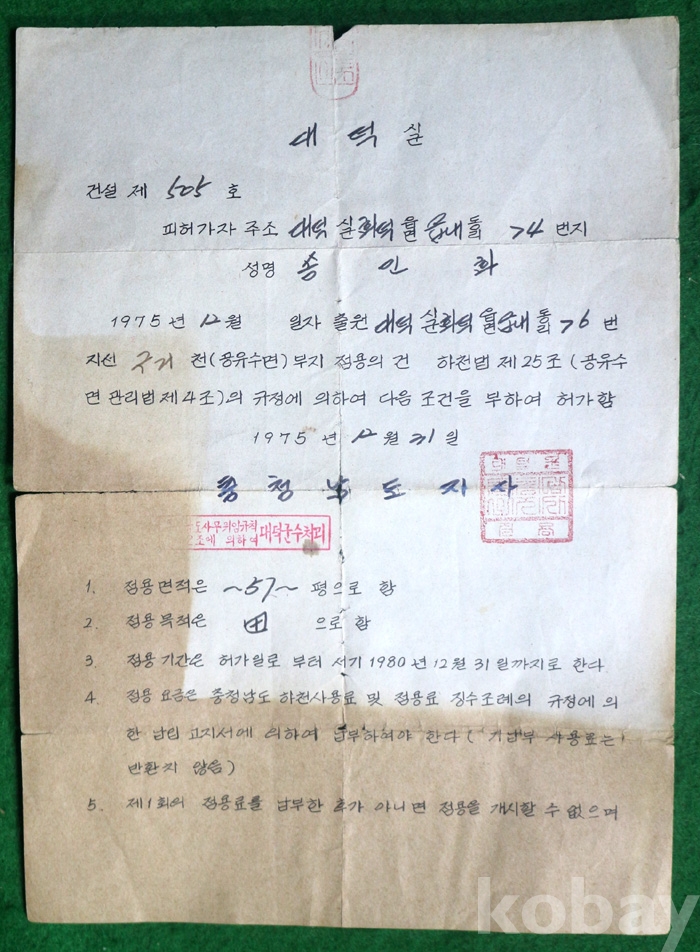 대 덕 군
건설 제 505 호
피허가자 주소 대덕 군 회덕 읍내 74 번지
성명 송 인 화
1975 년 12 월 일자 출원 대덕 군 회덕 읍내 76 번
지선 천(공유수면)부지 점용의 건 하천법 제25조(공유수
면 관리법 제4조)의 규정에 의하여 다음 조건을 부하여 허가함
1975 년 12 월 31 일
충 청 남 도 지 사
도사무위임규칙
조에 의하여 대덕군수처리
1. 점용면적은 ~57~ 평으로 함
2. 점용목적은 田 으로 함
3. 점용기간은 허가일로 부터 서기 1980 년 12 월 31 일까지로 한다
4. 점용 요금은 충청남도 하천사용료 및 점용료 징수조례의 규정에 의
한 납입 고지서에 의하여 납부하여야 한다 (기납부 사용료는
반환치 않음)
5. 제1회의 점용료를 납부한 후가 아니면 점용을 개시할 수 없으며
kobay